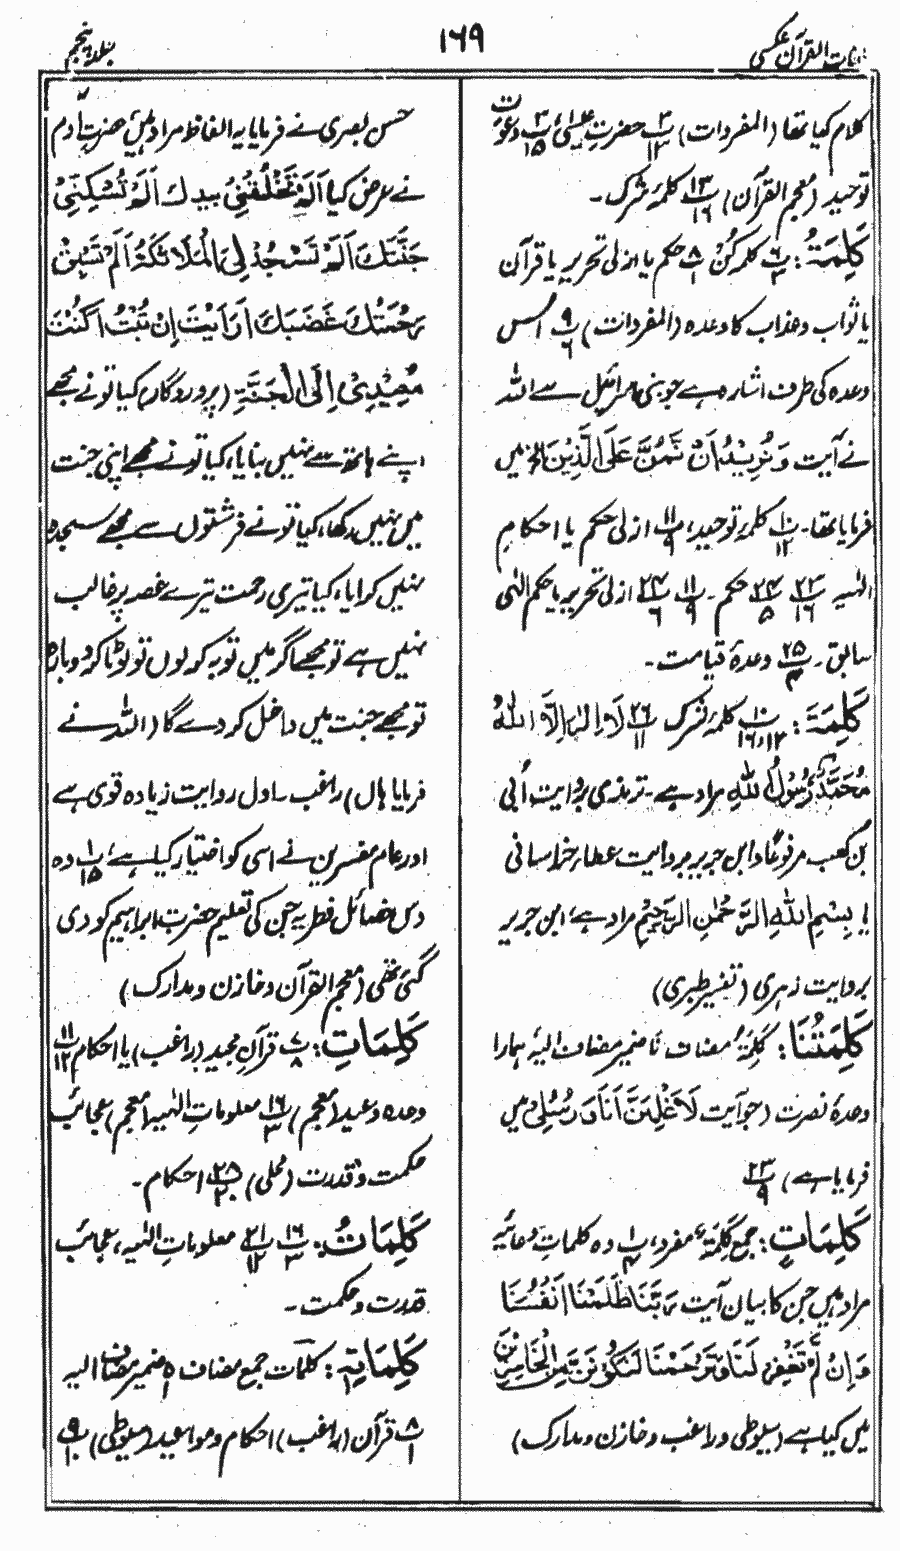 لغات القرآن عکسی
۱۶۹
جلد پنجم
کلام کیا تھا (المفردات) ۳/۱۳ حضرت عیسیٰ، ۳/۱۵ دعوت
توحید (معجم القرآن) ۱۳/۱۶ کلمۂ شرک۔
كَلِمَةُ: ۶/۳ کلمہ کُنْ ۸/۱ حکم یا ازلی تحریر یا قرآن
یا ثواب و عذاب کا وعدہ (المفردات) ۹/۶ اُس
وعدہ کی طرف اشارہ ہے جو بنی اسرائیل سے اللہ
نے آیت وَنُرِيدُ اَنْ نَّمُنَّ عَلَى الَّذِيْنَ الخ میں
فرمایا تھا۔ ۱۰/۱۲ کلمۂ توحید، ۱۱/۹ ازلی حکم یا احکامِ
الٰہیہ ۲۲/۱۶ ۲۴/۵ حکم۔ ۱۱/۹ ۲۴/۶ ازلی تحریر یا حکم الٰہی
سابق۔ ۲۵/۴ وعدۂ قیامت۔
كَلِمَةَ: ۱۰/۱۶،۱۲ کلمۂ شرک ۲۶/۱۱ لَا اِلٰهَ اِلَّا اللّٰهُ
مُحَمَّدٌ رَّسُوْلُ اللّٰهِ مراد ہے۔ ترمذی بروایت اُبی
بن کعب مرفوعًا و ابن جریر بروایت عطار خراسانی
یا بِسْمِ اللّٰهِ الرَّحْمٰنِ الرَّحِيْمِ مراد ہے، ابن جریر
بروایت زہری (تفسیر طبری)
كَلِمَتُنَا: كَلِمَةُ مضاف نَا ضمیر مضاف الیہ، ہمارا
وعدۂ نصرت (جو آیت لَاَغْلِبَنَّ اَنَا وَرُسُلِيْ میں
فرمایا ہے) ۲۳/۹
كَلِمَاتٍ: جمع كَلِمَةٌ مفرد، ۱/۴ وہ کلماتِ دعائیہ
مراد ہیں جن کا بیان آیت رَبَّنَا ظَلَمْنَا اَنْفُسَنَا
وَاِنْ لَّمْ تَغْفِرْ لَنَا وَتَرْحَمْنَا لَنَكُوْنَنَّ مِنَ الْخَاسِرِيْنَ
میں کیا ہے (سیوطی و راغب و خازن و مدارک)
حسن بصری نے فرمایا یہ الفاظ مراد ہیں، حضرت آدمؑ
نے عرض کیا اَلَمْ تَخْلُقْنِيْ بِيَدِكَ اَلَمْ تُسْكِنِّيْ
جَنَّتَكَ اَلَمْ تَسْجُدْ لِيْ الْمَلَائِكَةُ اَلَمْ تَسْبِقْ
رَحْمَتُكَ غَضَبَكَ اَرَاَيْتَ اِنْ تُبْتُ اَكُنْتَ
مُعِيْدِيْ اِلَى الْجَنَّةِ (پروردگار! کیا تو نے مجھے
اپنے ہاتھ سے نہیں بنایا، کیا تو نے مجھے اپنی جنت
میں نہیں رکھا، کیا تو نے فرشتوں سے مجھے سجدہ
نہیں کرایا، کیا تیری رحمت تیرے غصہ پر غالب
نہیں ہے تو مجھے اگر میں توبہ کر لوں تو لوٹا کر دوبارہ
تو مجھے جنت میں داخل کر دے گا (اللہ نے
فرمایا ہاں) راغب۔ اول روایت زیادہ قوی ہے
اور عام مفسرین نے اسی کو اختیار کیا ہے، ۱/۱۵ وہ
دس خصائل فطریہ جن کی تعلیم حضرت ابراہیم کو دی
گئی تھی (معجم القرآن و خازن و مدارک)
كَلِمَاتِ: ۷/۸ قرآن مجید (راغب) یا احکام ۱۱/۱۲
وعدہ وعید (معجم) ۱۶/۳ معلوماتِ الٰہیہ (معجم) عجائب
حکمت و قدرت (محلی) ۲۵/۲۰ احکام۔
كَلِمَاتُ: ۱۶/۳ ۲۱/۱۲ معلوماتِ الٰہیہ، عجائب
قدرت و حکمت۔
كَلِمَاتِهٖ: کلمات جمع مضاف ہٖ ضمیر مضاف الیہ
۸/۱ قرآن (راغب) احکام و مواعید (سیوطی) ۹/۱۰